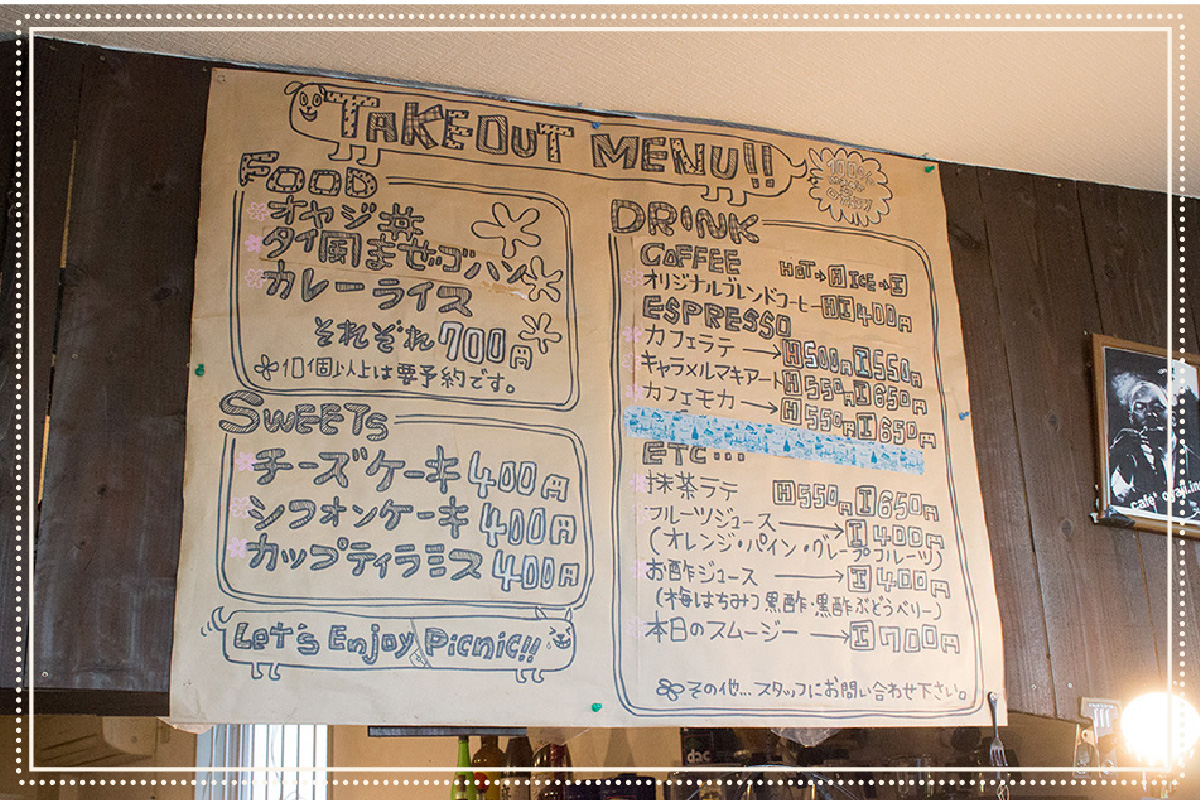 TAKEOUT MENU!!
FOOD
オヤジ丼
タイ風まぜゴハン
カレーライス
それぞれ700円
10個以上は要予約です。
SWEETS
チーズケーキ 400円
シフォンケーキ 400円
カップティラミス 400円
Let's Enjoy Picnic!!
100%
DRINK
COFFEE HOT→H ICE→I
オリジナルブレンドコーヒー HI 400円
ESPRESSO
カフェラテ → H500円 I550円
キャラメルマキアート H550円 I650円
カフェモカ → H550円 I650円
ETC...
抹茶ラテ H550円 I650円
フルーツジュース → I 400円
(オレンジ・パイン・グレープフルーツ)
お酢ジュース → I 400円
(梅はちみつ黒酢・黒酢ぶどうベリー)
本日のスムージー → I 700円
その他...スタッフにお問い合わせ下さい。
cafe' Oyaji.